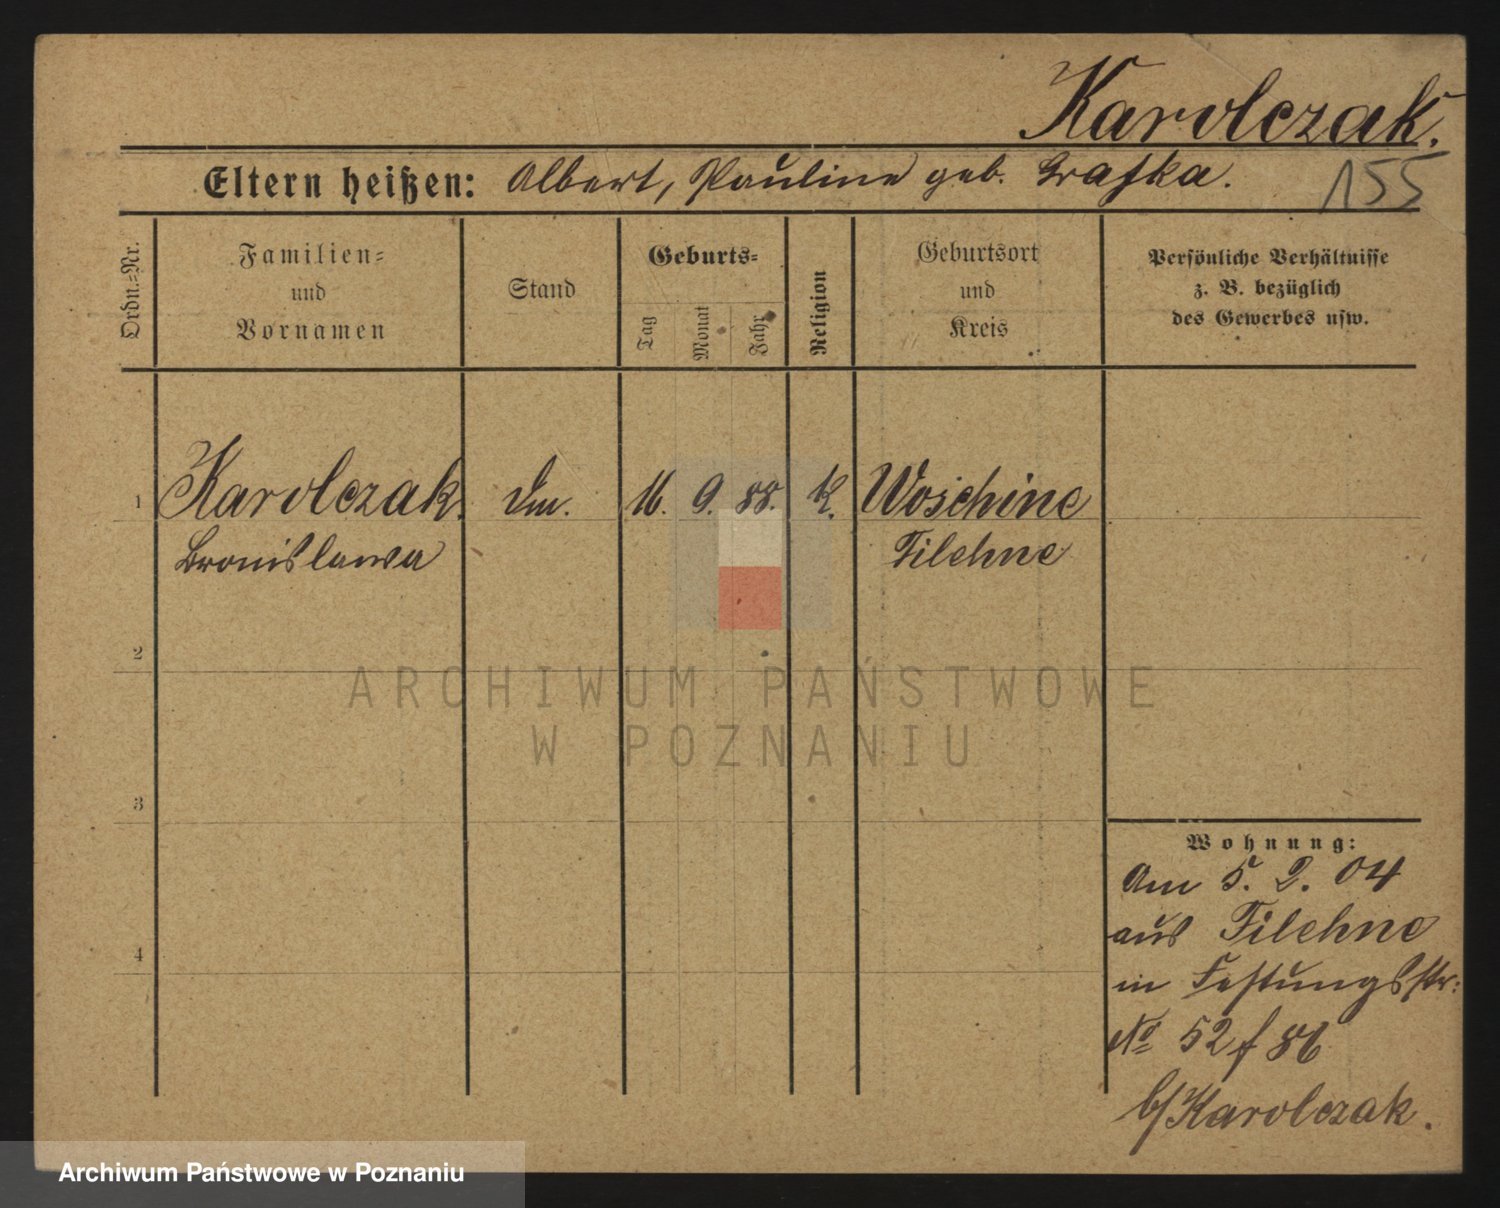 Karolczak.
Eltern heißen: Albert, Pauline geb. Grafka.
155
Ordn.=Nr.
Familien=
und
Vornamen
Stand
Geburts=
Tag
Monat
Jahr
Religion
Geburtsort
und
Kreis
Persönliche Verhältnisse
z. B. bezüglich
des Gewerbes usw.
1 Karolczak. 16. 9. 88. K. Woschine
Bronislawa Filehne
2
ARCHIWUM PAŃSTWOWE
W POZNANIU
3
Wohnung:
Am 5. 2. 04
aus Filehne
4
in Festungsstr:
No 52 f 86
b/Karolczak.
Archiwum Państwowe w Poznaniu